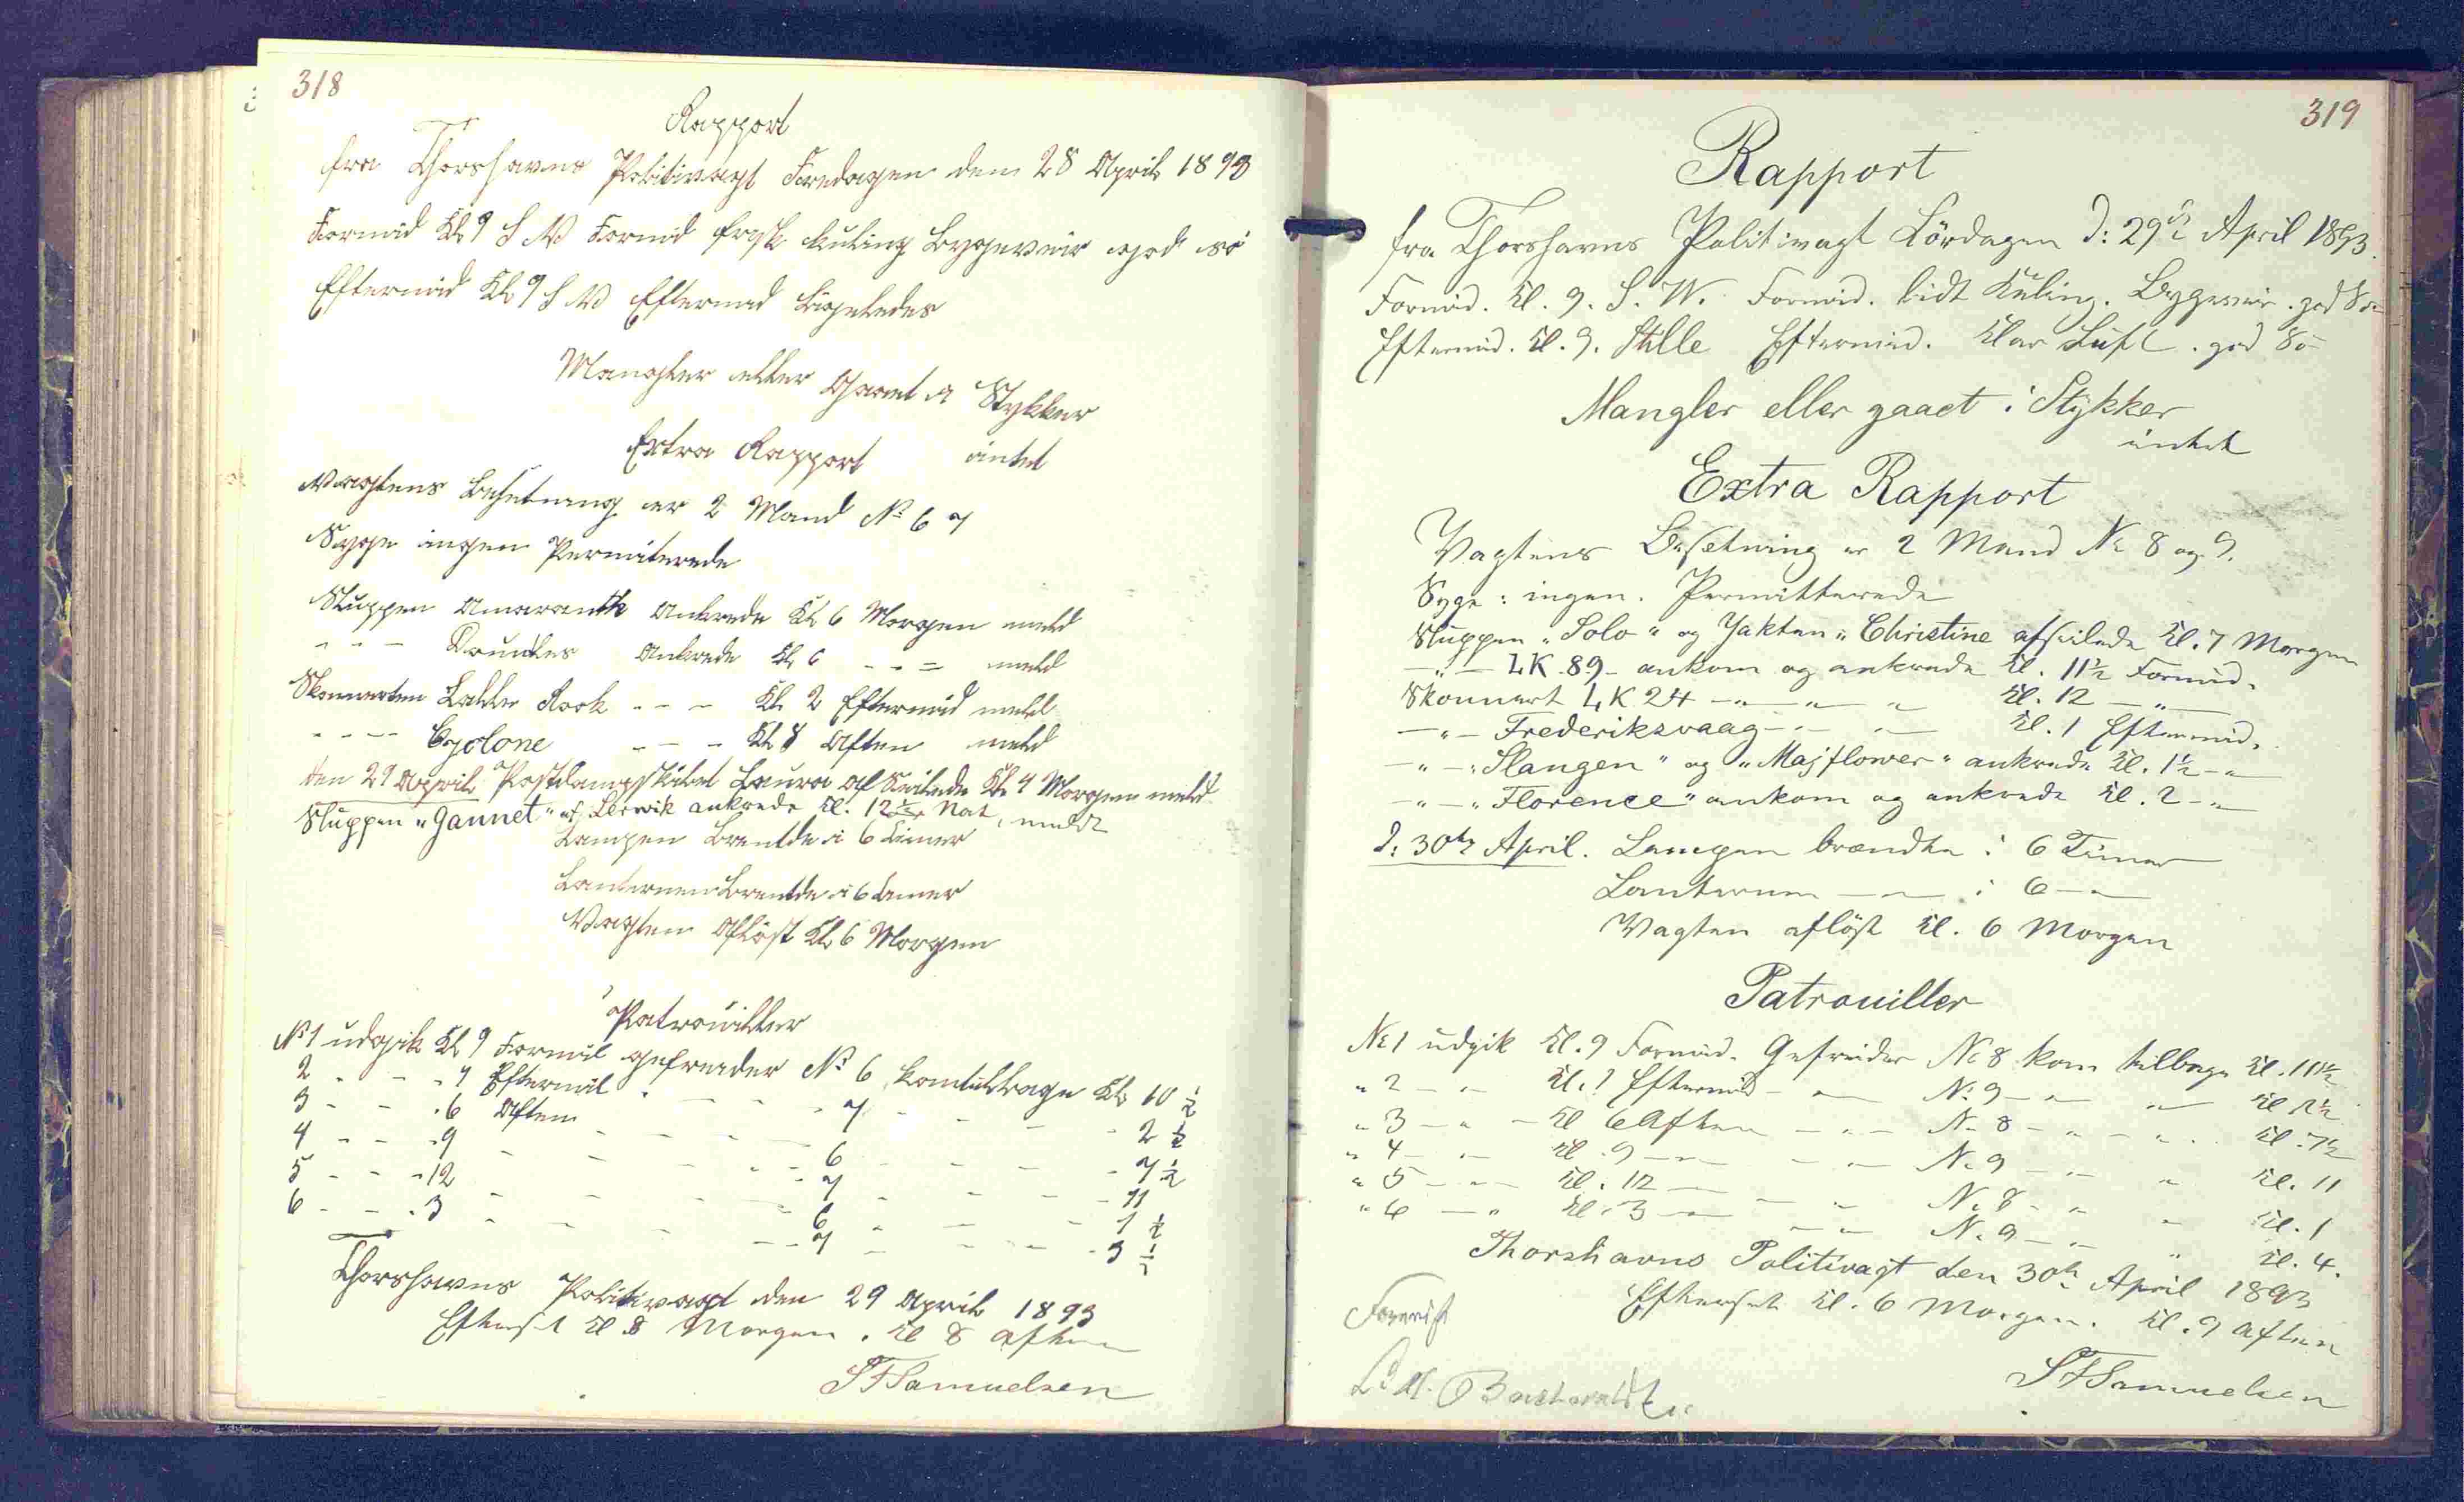 318
Rapport
fra Thorshavns Politivagt Fredagen den 28 April 1893
Formid Kl 9 S W Formid frisk kuling Bygeveir god sö
Eftermid Kl 9 S W Eftermid ligeledes
Mangler eller Gaaet i Stykker
intet
Extra Rapport
Vagtens Besetning er 2 Mand No 6 7
Syge ingen Permiterede
Sluppen Amaranth Ankrede Kl 6 Morgen meld
- - - Ankrede Kl 6 - - = meld
Skonnerten Rook - - - Kl 2 Eftermid meld
- - - - Cyclone - - - Kl 8 Aften meld
den 29 April Postdampskibet Laura af Seilede Kl 4 Morgen meld
Sluppen "Gannet" af Lerwik ankrede Kl. 12½ Nat, meldt
Lampen Brentde i 6 Timer
Lanternen Brentde i 6 Timer
Vagten Aflöst Kl 6 Morgen
Patrouiller
No 1 udgik Kl 9 Formid gefreider No 6 komtilbage Kl 10 ½
2 - - - 1 Eftermid - - - - 7 - - - - 2 ½
3 - - - 6 Aften - - - - 6 - - - - 7 ½
4 - - - 9 - - - - 7 - - - - 11
5 - - - 12 - - - - 6 - - - - 1 ½
6 - - - 3 - - - - 7 - - - - 3 ½
Thorshavns Politivagt den 29 April 1893
Efterset Kl 8 Morgen. Kl 8 Aften
S F Samuelsen
319
Rapport
fra Thorshavns Politivagt Lördagen d: 29de April 1893.
Formid. Kl. 9. S. W. Formid. lidt Kuling. Bygeveir. god Sö
Eftermid. Kl. 9. Stille Eftermid. Klar Luft. god Sö
Mangler eller gaaet i Stykker
intet
Extra Rapport
Vagtens Besetning er 2 Mand No 8 og 9.
Syge: ingen. Permitterede
Sluppen "Solo" og Jakten "Christine afseilede Kl. 7 Morgen
—"— LK. 89 - ankom og ankrede Kl. 11½ Formid.
Skonnert LK 24 —"— " " Kl. 12 —"—
—"— Frederiksvaag —"— " Kl. 1 Eftermid.
—"— "Slangen" og "Majflower" ankrede Kl. 1½ —"
—"— "Florence" ankom og ankrede Kl. 2 —"
d: 30te April. Lampen brændte i 6 Timer
Lanternen —"— i 6 —"—
Vagten aflöst Kl. 6 Morgen
Patrouiller
No 1 udgik Kl. 9 Formid. Gefreider No 8 kom tilbage Kl. 11½
" 2 —"— Kl. 1 Eftermid —"— No 9 —"— " Kl. 2½
" 3 —"— Kl 6 Aften —"— No 8 —"— " Kl. 7½
" 4 —"— Kl. 9 —"— —"— No 9 —"— " Kl. 11
" 5 —"— Kl. 12 —"— —"— No 8 —"— " Kl. 1
" 6 —"— Kl. 3 —"— —"— No 9 —"— " Kl. 4.
Thorshavns Politivagt den 30te April 1893
Efterset Kl. 6 Morgen. Kl. 9 Aften
Forevist
S F Samuelsen